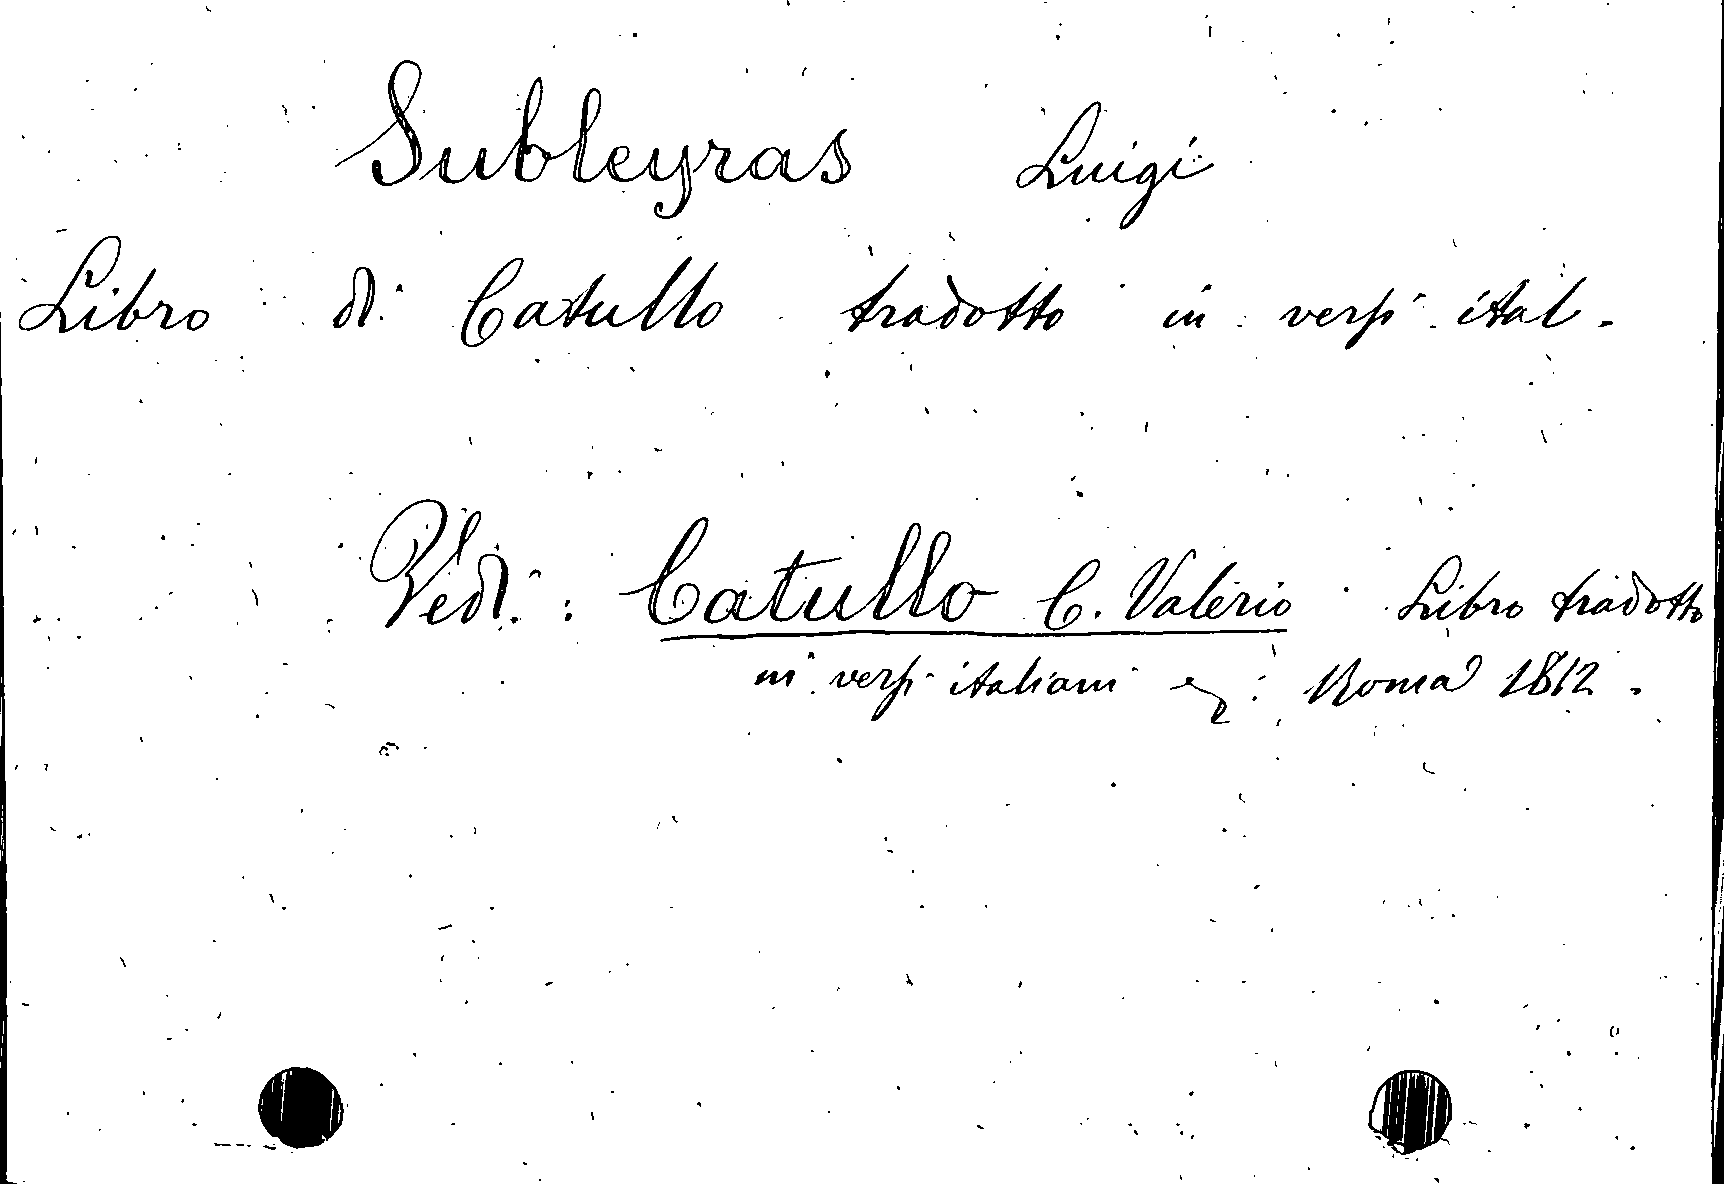 Subleyras Luigi
Libro di Catullo tradotto in versi ital.
Vedi: Catullo C. Valerio Libro tradotto
in versi italiani : Roma 1812.